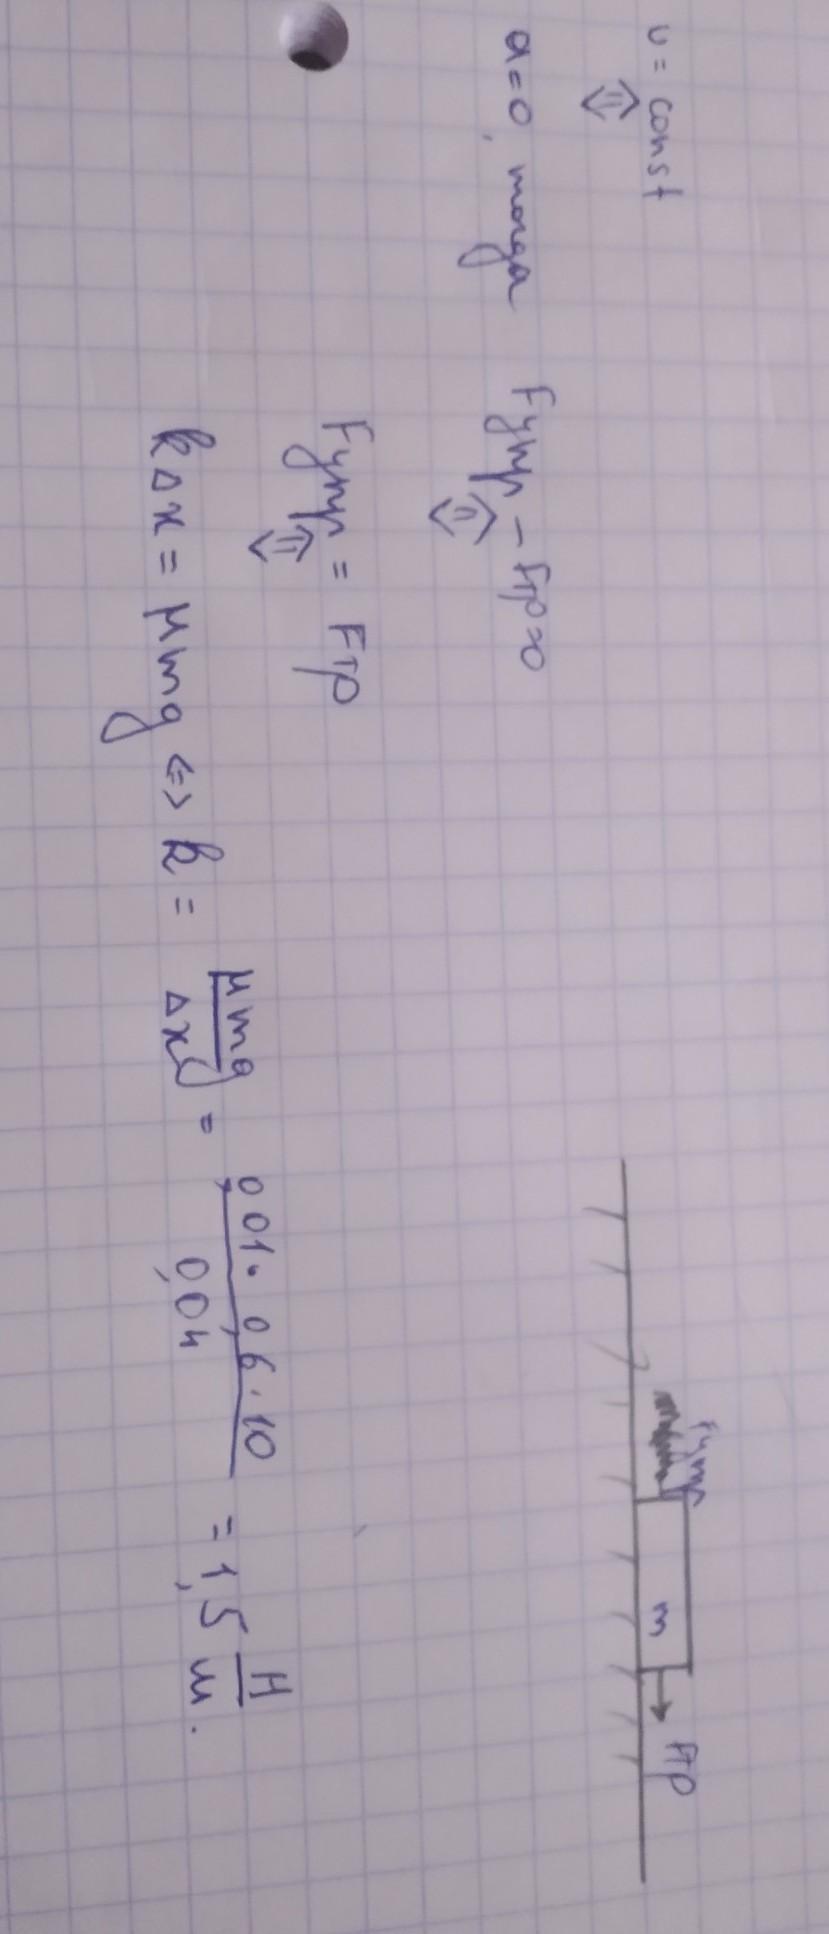 υ = const
⇕
a = 0, тогда Fупр − Fтр = 0
⇕
Fупр = Fтр
⇕
kΔx = μmg ⇔ k = μmg/Δx = 0,01 · 0,6 · 10/0,04 = 1,5 Н/м.
Fупр
m
Fтр